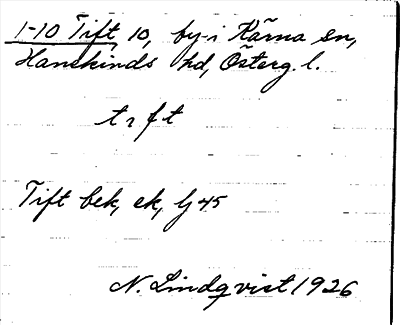 1-10 Tift, 10, by-i Kärna sn,
Hanekinds hd, Österg. l.
t ı f t
Tift bek, ek, lj 45
N. Lindqvist 1926